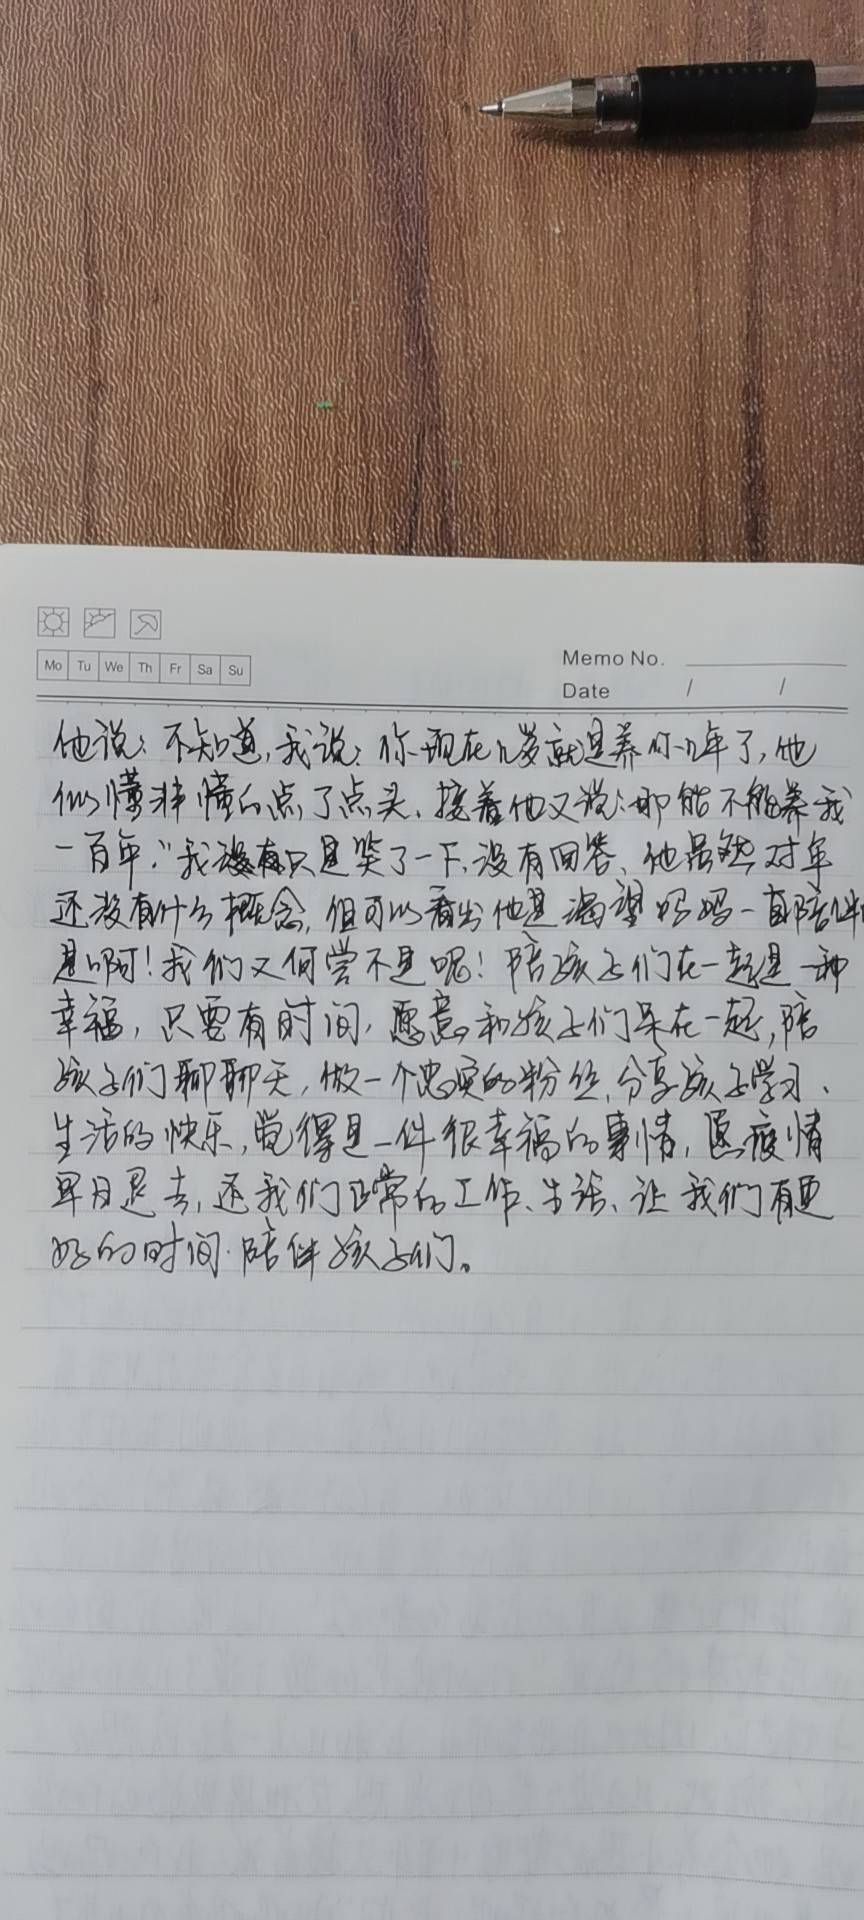 Mo Tu We Th Fr Sa Su
Memo No.
Date / /
他说：不知道，我说：你现在几岁就是养你几年了，他
似懂非懂的点了点头、接着他又说：那能不能养我
一百年？”我只是笑了一下，没有回答、他虽然对年
还没有什么概念，但可以看出他是渴望妈妈一直陪伴
是啊！我们又何尝不是呢！陪孩子们在一起是一种
幸福，只要有时间，愿意和孩子们呆在一起，陪
孩子们聊聊天，做一个忠实的粉丝，分享孩子学习、
生活的快乐，觉得是一件很幸福的事情，愿疫情
早日退去，还我们正常的工作、生活、让我们有更
好的时间陪伴孩子们。